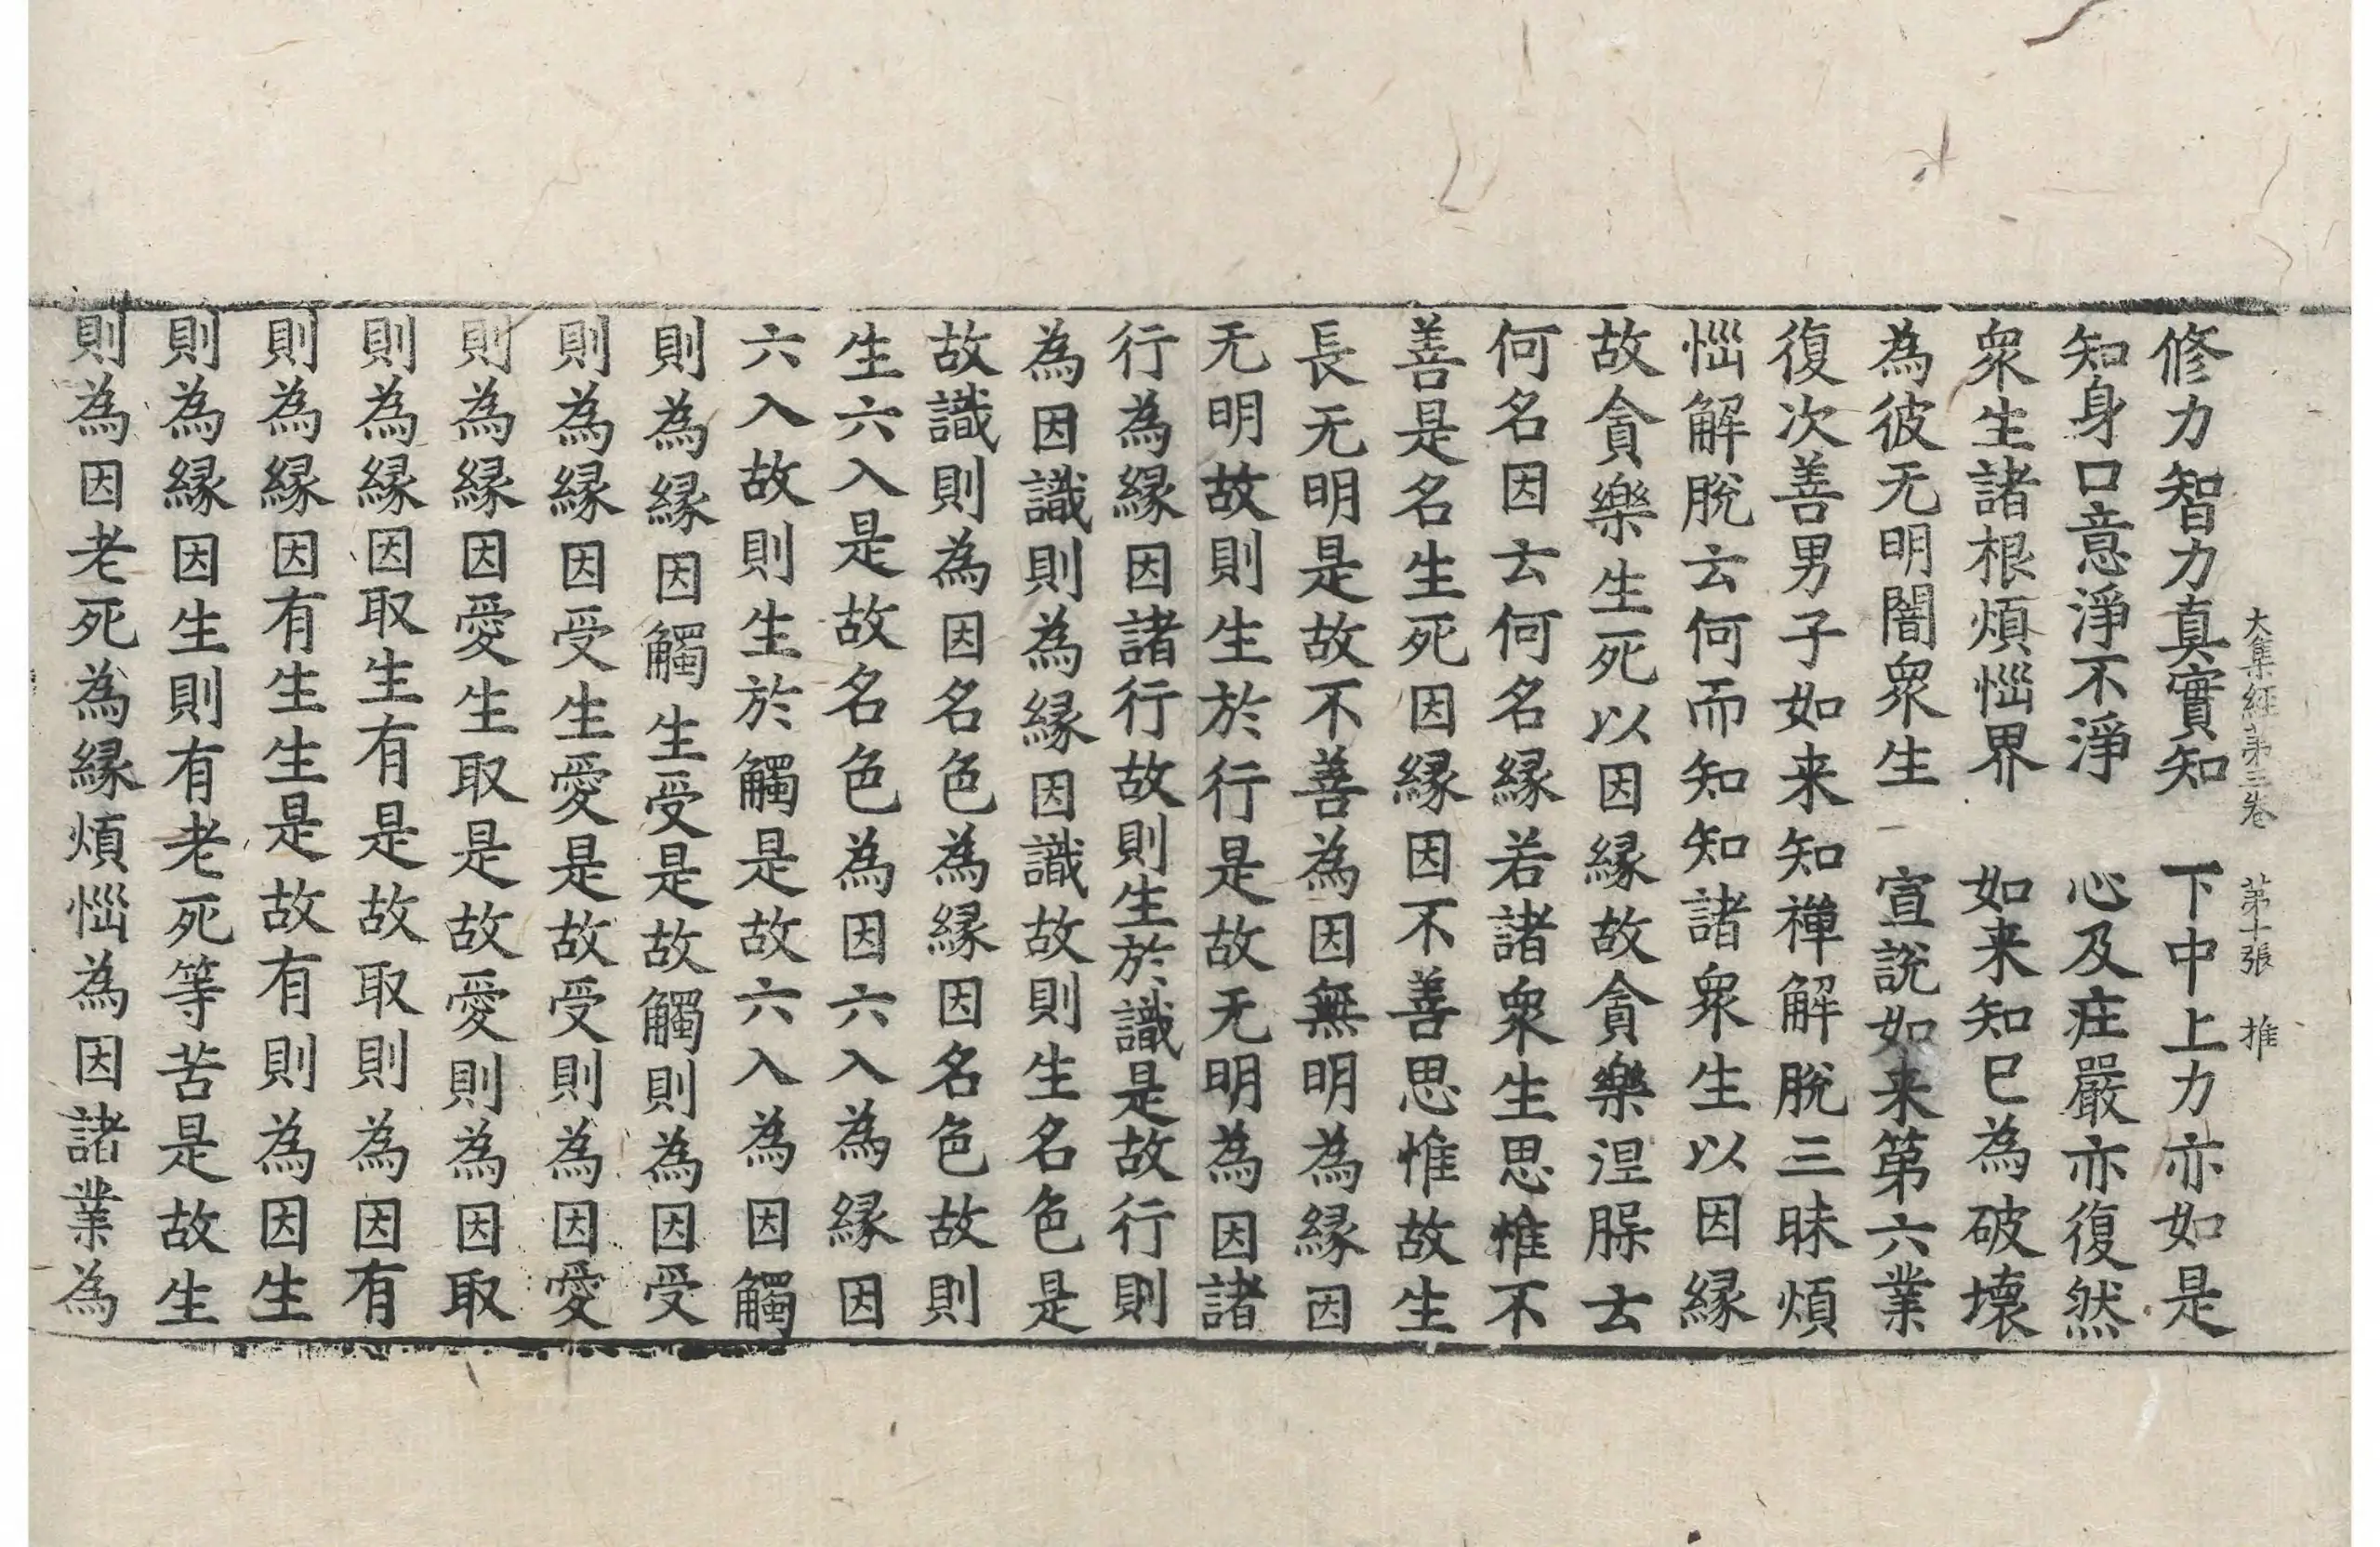 大集經第三卷　第十張　推
修力智力真實知　下中上力亦如是
知身口意淨不淨　心及疰嚴亦復然
衆生諸根煩惱界　如来知已為破壞
為彼无明闇衆生　宣說如来第六業
復次善男子如来知禪解脫三昧煩
惱解脫云何而知知諸衆生以因縁
故貪樂生死以因縁故貪樂涅槃云
何名因云何名縁若諸衆生思惟不
善是名生死因縁因不善思惟故生
長无明是故不善為因無明為縁因
无明故則生於行是故无明為因諸
行為縁因諸行故則生於識是故行則
為因識則為縁因識故則生名色是
故識則為因名色為縁因名色故則
生六入是故名色為因六入為縁因
六入故則生於觸是故六入為因觸
則為縁因觸生受是故觸則為因受
則為縁因受生愛是故受則為因愛
則為縁因愛生取是故愛則為因取
則為縁因取生有是故取則為因有
則為縁因有生生是故有則為因生
則為縁因生則有老死等苦是故生
則為因老死為縁煩惱為因諸業為